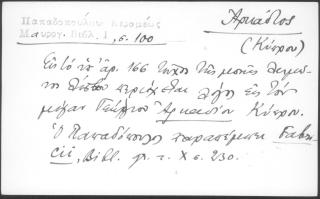 Παπαδοπούλου Κεραμέως
Μαυρογ. Βιβλ. Ι, σ. 100
Ἀρκάδιος
(Κύπρου)
Εἰς τὸ ὑπ' ἀρ. 166 τῆς μονῆς
περιέχεται λόγος εἰς τὸν
μέγαν Γεώργιον Ἀρκαδίου Κύπρου.
Ὁ Παπαδόπουλος παραπέμπει Fabri-
cii, Bibl. gr. τ. X σ. 230.